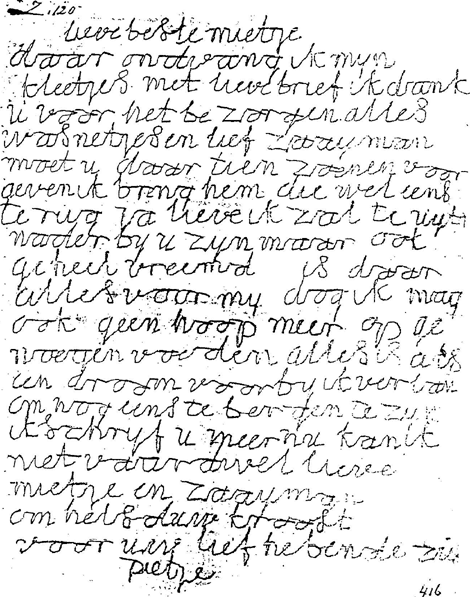 Z. 120
lieve beste mietje
daar ondvang ik myn
kleetjes met lieve brief ik dank
u voor het be zorgen alles
was netjes en lief zaayman
moet u daar tien zoenen voor
geven ik breng hem die wel eens
te rug ja lieve ik zal te
nader by u zyn maar ook
geheel vreemd is daar
alles voor my dog ik mag
ook geen hoop meer op ge
noegen voeden alles is als
een droom voorby ik verlan
om nog eens te bergen te zyn
ik schryf u meer nu kan ik
niet vaar wel lieve
mietje en zaayman
om hels duw kroost
voor uw lief hebende zu
pietje
416